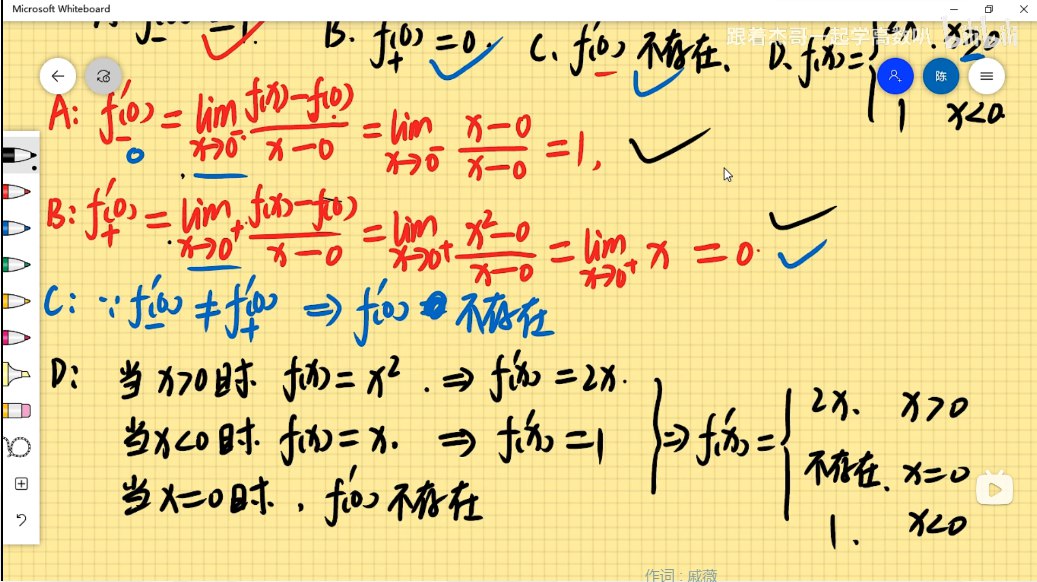 Microsoft Whiteboard
跟着杰哥一起学高数叭 bilibili
B. f₊′(0) = 0. C. f′(0) 不存在. D. f′(x) = {
1 x<0.
陈
A: f₋′(0) = lim x→0⁻ (f(x)−f(0))/(x−0) = lim x→0⁻ (x−0)/(x−0) = 1, ✓
B: f₊′(0) = lim x→0⁺ (f(x)−f(0))/(x−0) = lim x→0⁺ (x²−0)/(x−0) = lim x→0⁺ x = 0. ✓ ✓
C: ∵ f₋′(0) ≠ f₊′(0) ⇒ f′(0) 不存在
D: 当 x>0 时. f(x) = x². ⇒ f′(x) = 2x.
当 x<0 时. f(x) = x. ⇒ f′(x) = 1
当 x=0 时. , f′(0) 不存在
} ⇒ f′(x) = {
2x. x>0
不存在. x=0
1. x<0
作词 : 戚薇